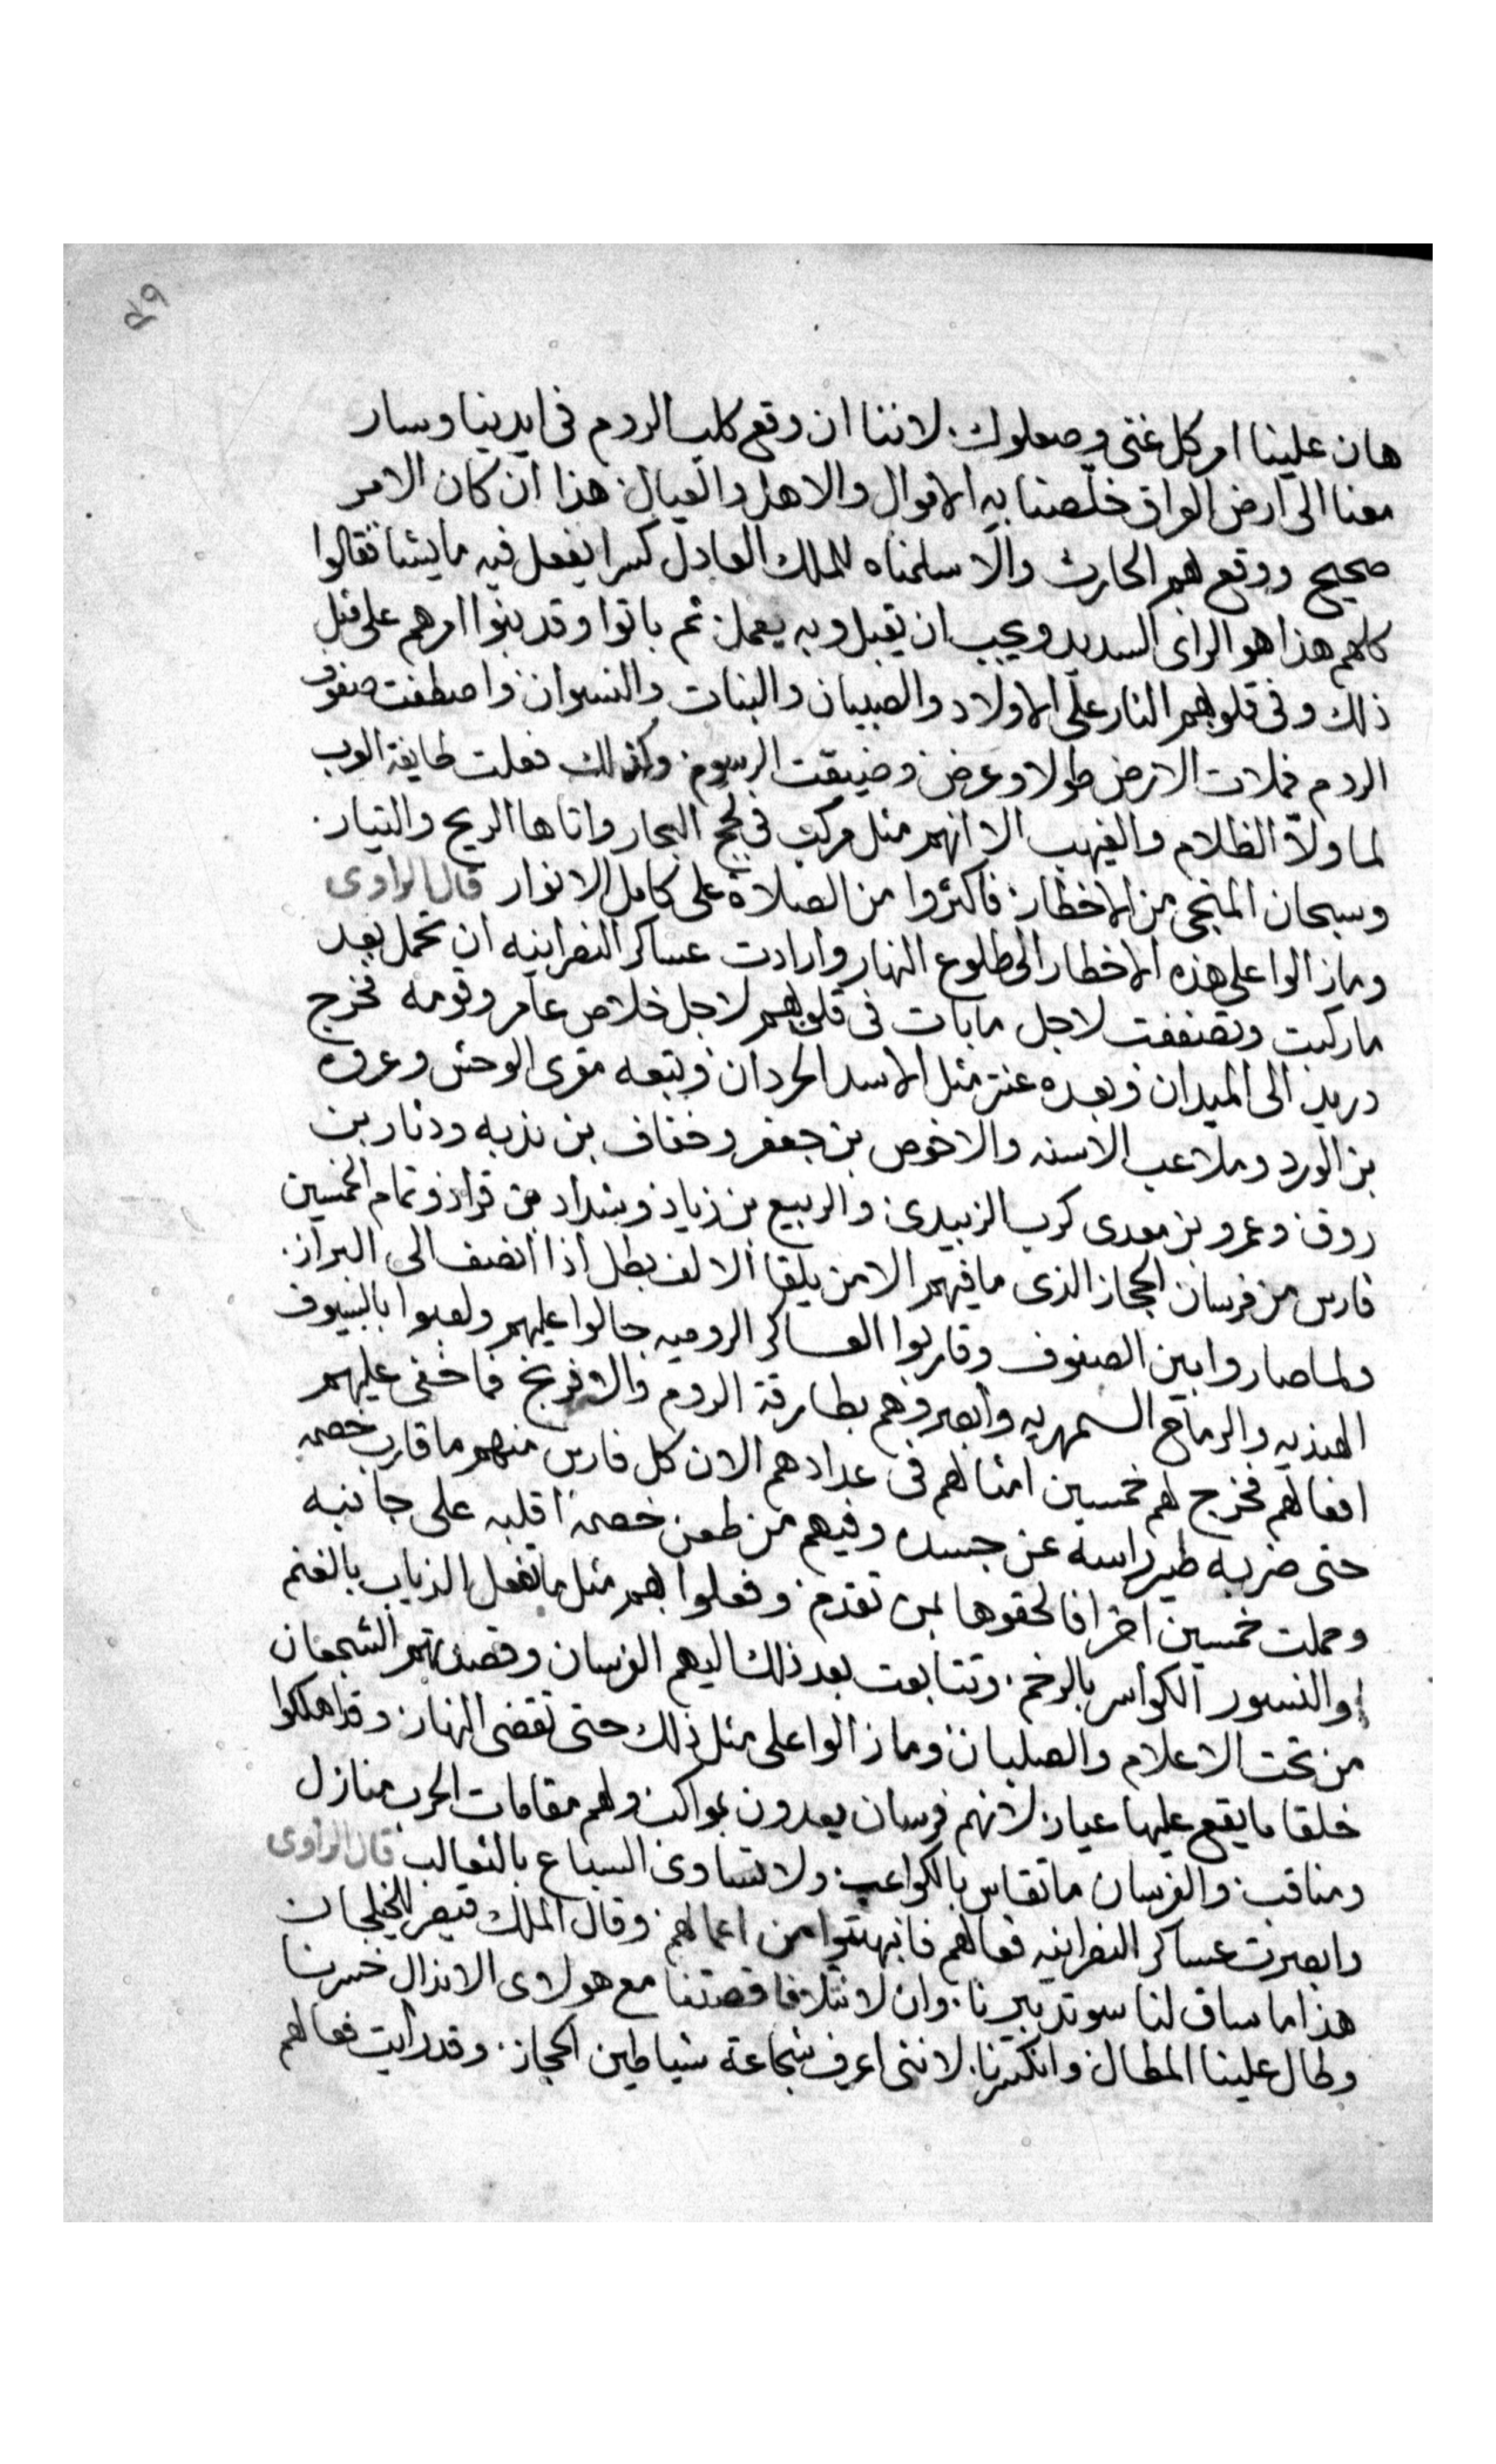 ٤٩
هان علينا امر كل غنى وصعلوك. لاننا ان وقع كلب الروم فى ايدينا وسار
معنا الى ارض العراق خلصنا به الاموال والاهل والعيال. هذا ان كان الامر
صحيح ووقع لهم الحارث والا سلمناه للملك العادل كسرا يفعل فيه ما يشا فقالوا
كلهم هذا هو الراى السديد ويجب ان يقبل وبه يعمل. ثم باتوا وقد بنوا امرهم على مثل
ذلك وفى قلوبهم النار على الاولاد والصبيان والبنات والنسوان واصطفت صفوف
الروم فملات الارض طولا وعرض. وضيقت الرسوم. وكذلك فعلت طايفة العرب
لما ولا الظلام والغيهب الا انهم مثل مركب فى لجج البحار واتاها الريح والتيار.
وسبحان المنجى من الاخطار. فاكثروا من الصلاة على كامل الانوار قال الراوى
وما زالوا على هذه الاخطار الى طلوع النهار وارادت عساكر النصرانيه ان تحمل بعد
ما ركبت وتصففت لاجل ما بات فى قلوبهم لاجل خلاص عامر وقومه فخرج
دريد الى الميدان وبعده عنتر مثل الاسد الحردان وتبعه مقرى الوحش وعروه
بن الورد وملاعب الاسنه والاخوص بن جعفر وخفاف بن ندبه ودثار بن
روق. وعمرو بن معدى كرب الزبيدى. والربيع بن زياد وشداد بن قراد وتمام الخمسين
فارس من فرسان الحجاز الذى ما فيهم الا من يلقا الالف بطل اذا انضف الى البراز.
ولما صاروا بين الصفوف وقاربوا العساكر الروميه جالوا عليهم ولعبوا بالسيوف
الهنديه والرماح السمهريه وابصروهم بطارقة الروم والافرنج فما خفى عليهم
افعالهم فخرج لهم خمسين امثالهم فى عدادهم الان كل فارس منهم ما قارب خصمه
حتى ضربه طير راسه عن جسده وفيهم من طعن خصمه اقلبه على جانبه
وحملت خمسين اخر افالحقوها بمن تقدم. وفعلوا بهم مثل ما تفعل الذياب بالغنم
والنسور الكواسر بالرخم. وتتابعت بعد ذلك اليهم الفرسان وقصدتهم الشجعان
من تحت الاعلام والصلبان. وما زالوا على مثل ذلك حتى تقضى النهار. وقد اهلكوا
خلقا ما يقع عليها عيار. لانهم فرسان يعدون بمواكب ولهم مقامات الحرب منازل
ومناقب. والفرسان ما تقاس بالكواعب. ولا تساوى السباع بالثعالب قال الراوى
وابصرت عساكر النصرانيه فعالهم فانبهتوا من اعمالهم. وقال الملك قيصر للخيلجان
هذا ما ساق لنا سو تدبيرنا. وان لا نتلافا قصتنا مع هولاى الاندال خسرنا
وطال علينا المطال. وانكسرنا. لاننى اعرف شجاعة شياطين الحجاز. وقد رايت فعالهم